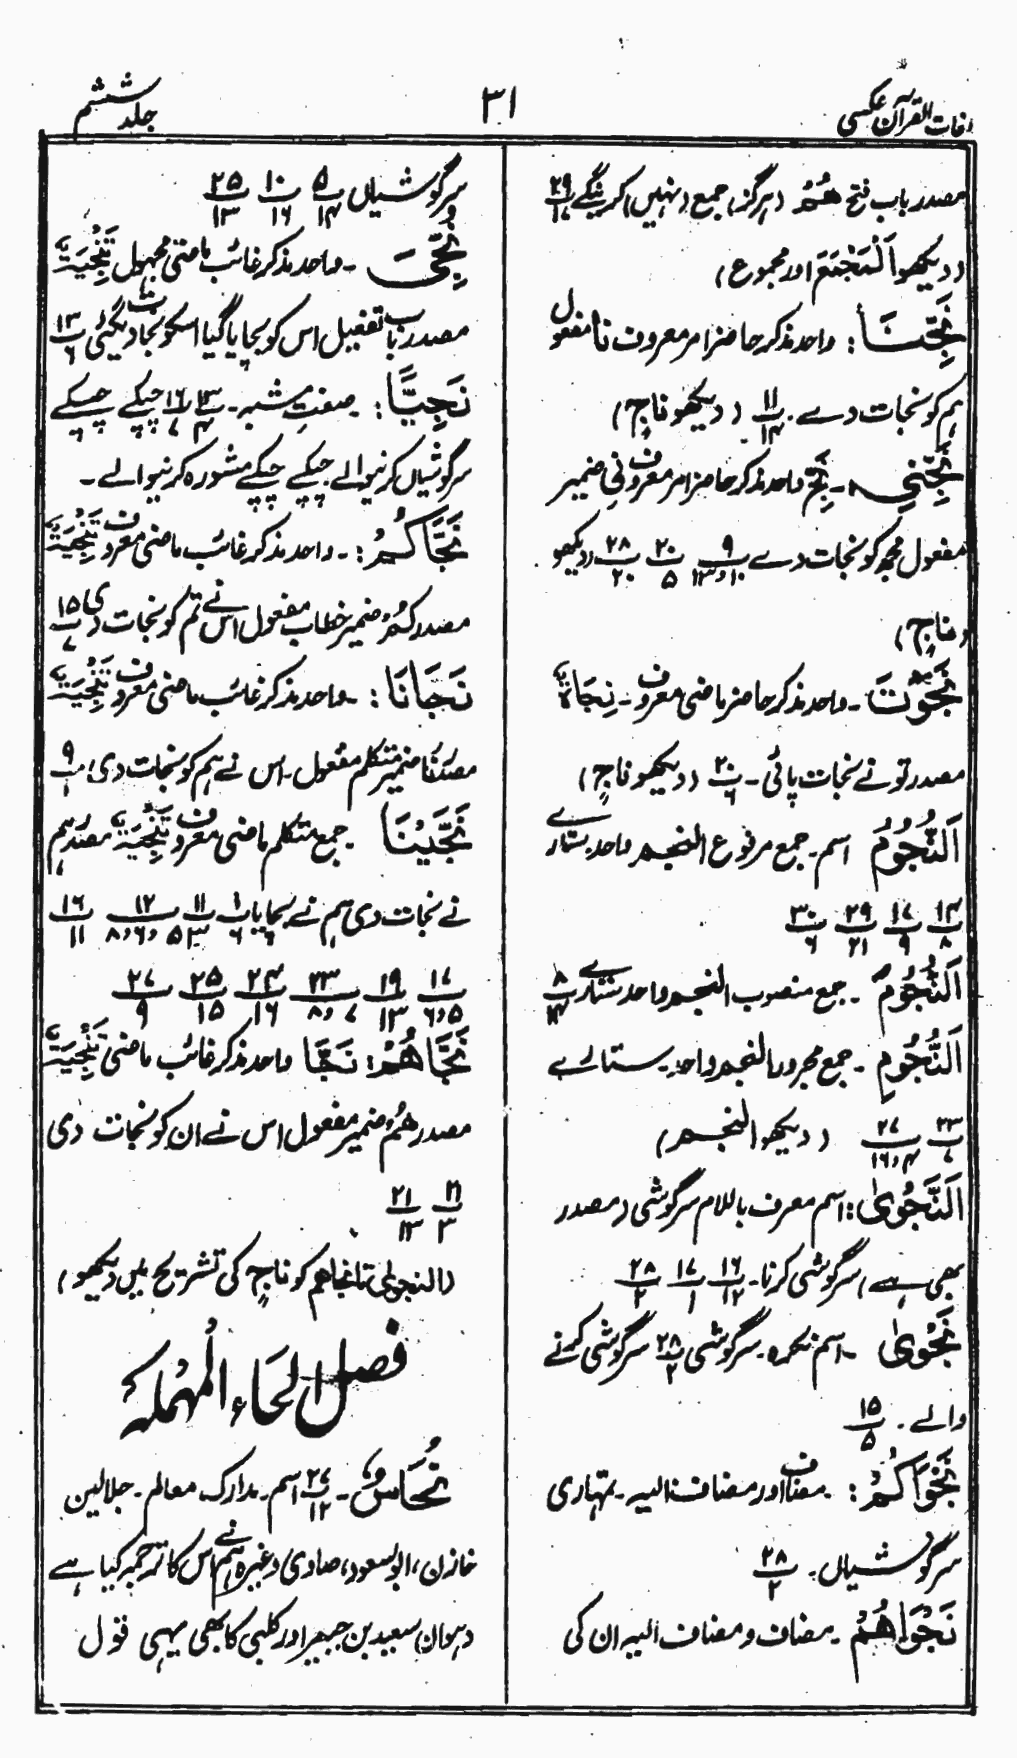 لغات القرآن عکسی
۳۱
جلد ششم
مصدر باب فتح ھُمْ (ہرگز) جمع (نہیں) کرینگے ۲۹/۱۷
(دیکھو اَلْمَجْنَعَ اور مجموع)
نَجِّنَا: واحد مذکر حاضر امر معروف نا مفعول
ہم کو نجات دے۔ ۱۱/۱۴ (دیکھو ناجٍ)
نَجِّنِی۔ نَجِّ واحد مذکر حاضر امر معروف نِی ضمیر
مفعول مجھ کو نجات دے ۹/۱۰ و ۱۳ ۲۰/۵ ۲۸/۲۰ (دیکھو
ناجٍ)
نَجَوْتَ۔ واحد مذکر حاضر ماضی معروف۔ نِجَاۃٌ
مصدر تو نے نجات پائی۔ ۲۰/۶ (دیکھو ناجٍ)
اَلنُّجُوْمُ اسم۔ جمع مرفوع النجم واحد ستارے
۱۴/۸ ۱۷/۹ ۲۹/۲۱ ۳۰/۶
اَلنُّجُوْمَ۔ جمع منصوب النجم واحد ستارے ۸/۱۴
اَلنُّجُوْمِ۔ جمع مجرور النجم واحد۔ ستارے
۲۳/۷ ۲۷/۴ و ۱۶ (دیکھو النجم)
اَلنَّجْوٰی: اسم معرف باللام سرگوشی (مصدر
بھی ہے) سرگوشی کرنا۔ ۱۶/۱۲ ۱۷/۱ ۲۸/۲
نَجْوٰی۔ اسم نکرہ۔ سرگوشی ۲۸/۲ سرگوشی کرنے
والے۔ ۱۵/۵
نَجْوَاکُمْ: مضاف اور مضاف الیہ۔ تمہاری
سرگوشیاں۔ ۲۸/۲
نَجْوَاھُمْ۔ مضاف و مضاف الیہ ان کی
سرگوشیاں ۵/۱۴ ۱۰/۱۶ ۲۵/۱۳
نُجِّیَ۔ واحد مذکر غائب ماضی مجہول تَنْجِیَۃٌ
مصدر باب تفعیل اس کو بچایا گیا اسکو نجات دیگئی ۱۳/۶
نَجِیًّا: صفت مشبہ۔ ۱۳/۴ ۱۶/۷ چپکے چپکے
سرگوشیاں کرنیوالے چپکے چپکے مشورہ کرنیوالے۔
نَجَّاکُمْ:۔ واحد مذکر غائب ماضی معروف تَنْجِیَۃٌ
مصدر کُمْ ضمیر خطاب مفعول اس نے تم کو نجات دی ۱۵/۷
نَجَانَا: واحد مذکر غائب ماضی معروف تَنْجِیَۃٌ
مصدر نَا ضمیر متکلم مفعول۔ اس نے ہم کو نجات دی ۹/۱
نَجَّیْنَا۔ جمع متکلم ماضی معروف تَنْجِیَۃٌ مصدر ہم
نے نجات دی ہم نے بچایا ۱/۶ ۱۱/۶ ۱۲/۵ و ۶ و ۸ ۱۶/۱۱
۱۷/۵ و ۶ ۱۹/۱۳ ۲۳/۷ و ۸ ۲۴/۱۶ ۲۵/۱۵ ۲۷/۹
نَجَّاھُمْ: نَجّٰا واحد مذکر غائب ماضی تَنْجِیَۃٌ
مصدر ھُمْ ضمیر مفعول اس نے ان کو نجات دی
۲۱/۳ ۲۱/۱۳
(النجوٰی تا نجاھم کو ناجٍ کی تشریح میں دیکھو)
فصل الحَاءِ المُہملہ
نُحَاسٌ۔ ۲۷/۱۲ اسم۔ مدارک، معالم۔ جلالین
خازن، ابوالسعود، صاوی وغیرہم نے اس کا ترجمہ کیا ہے
دہواں سعید بن جبیر اور کلبی کا بھی یہی قول